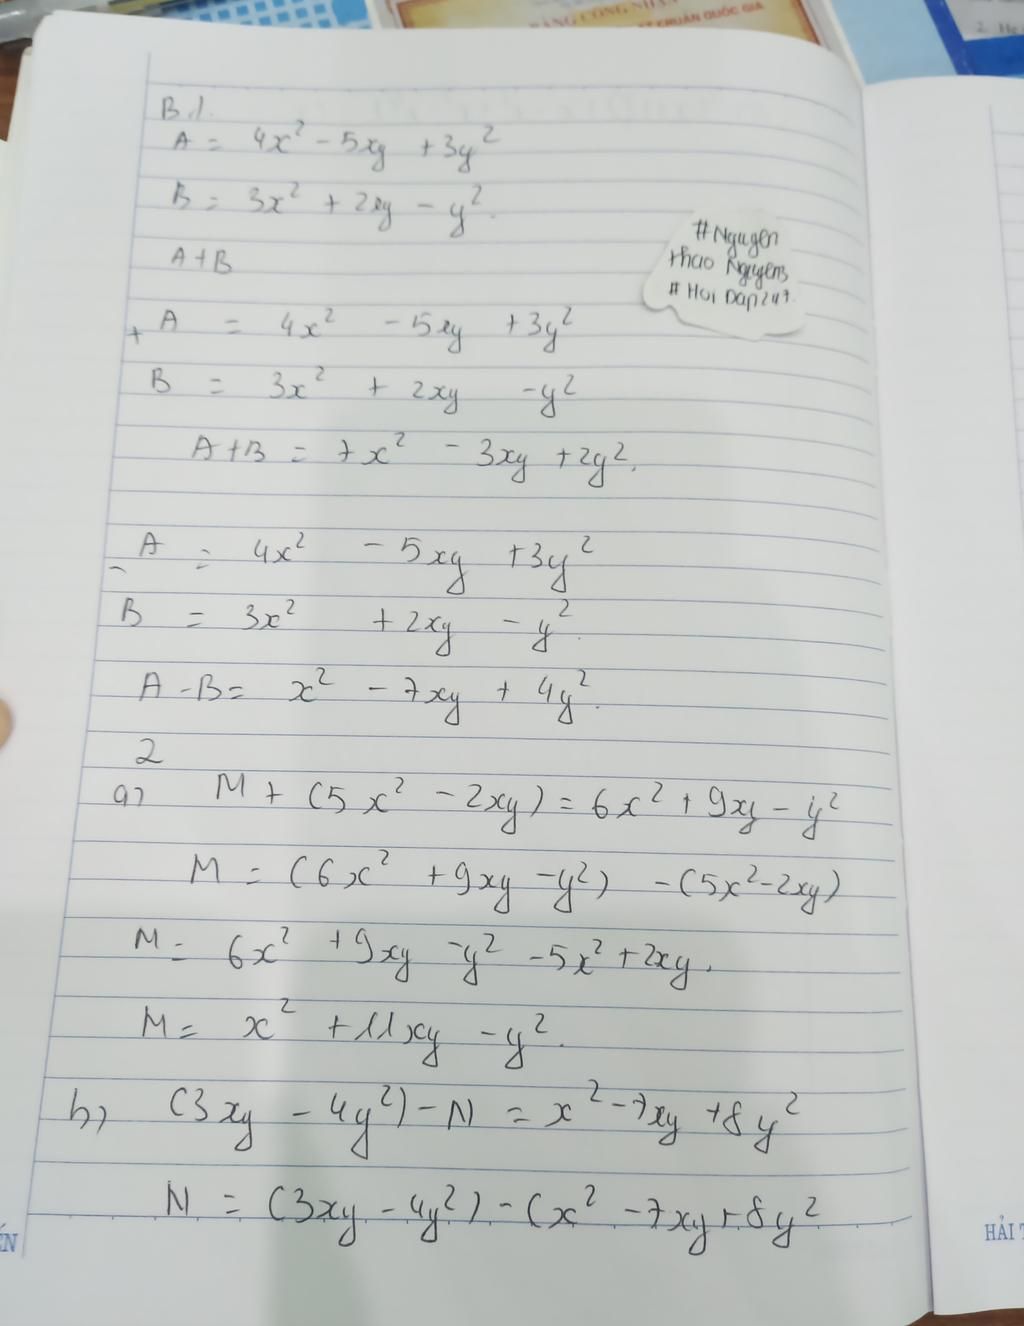 BẰNG CÔNG NHẬN
CHUẨN QUỐC GIA
2. He
B1.
A = 4x² - 5xy + 3y²
B = 3x² + 2xy - y².
A+B
#Nguyen
thao Nguyens
#Hoi Dap247.
+ A = 4x² - 5xy + 3y²
B = 3x² + 2xy - y²
A+B = 7x² - 3xy + 2y².
- A = 4x² - 5xy + 3y²
B = 3x² + 2xy - y².
A-B = x² - 7xy + 4y².
2
a) M + (5x² - 2xy) = 6x² + 9xy - y²
M = (6x² + 9xy - y²) - (5x² - 2xy)
M = 6x² + 9xy - y² - 5x² + 2xy.
M = x² + 11xy - y².
b) (3xy - 4y²) - N = x² - 7xy + 8y²
N = (3xy - 4y²) - (x² - 7xy + 8y²
HẢI